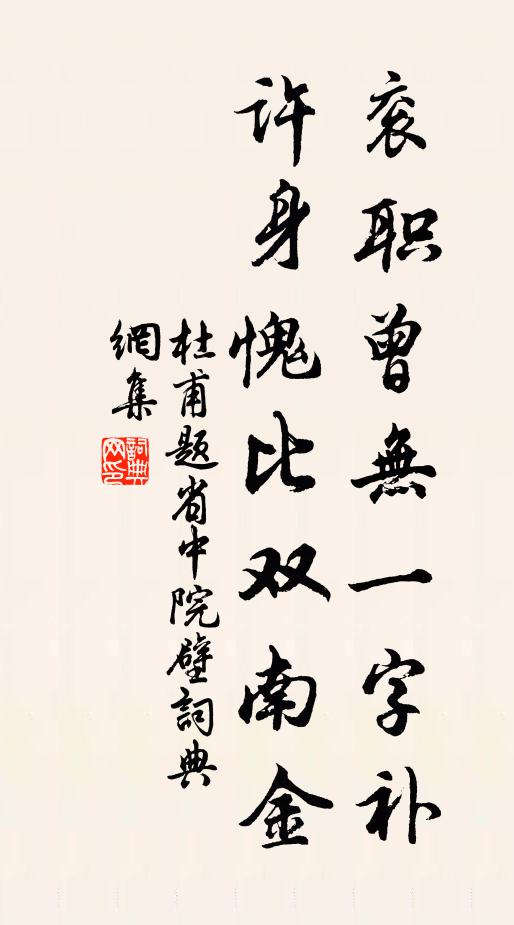 衮职曾無一字补
许身愧比双南金
杜甫题省中院壁詞典
網集
詞典
网印